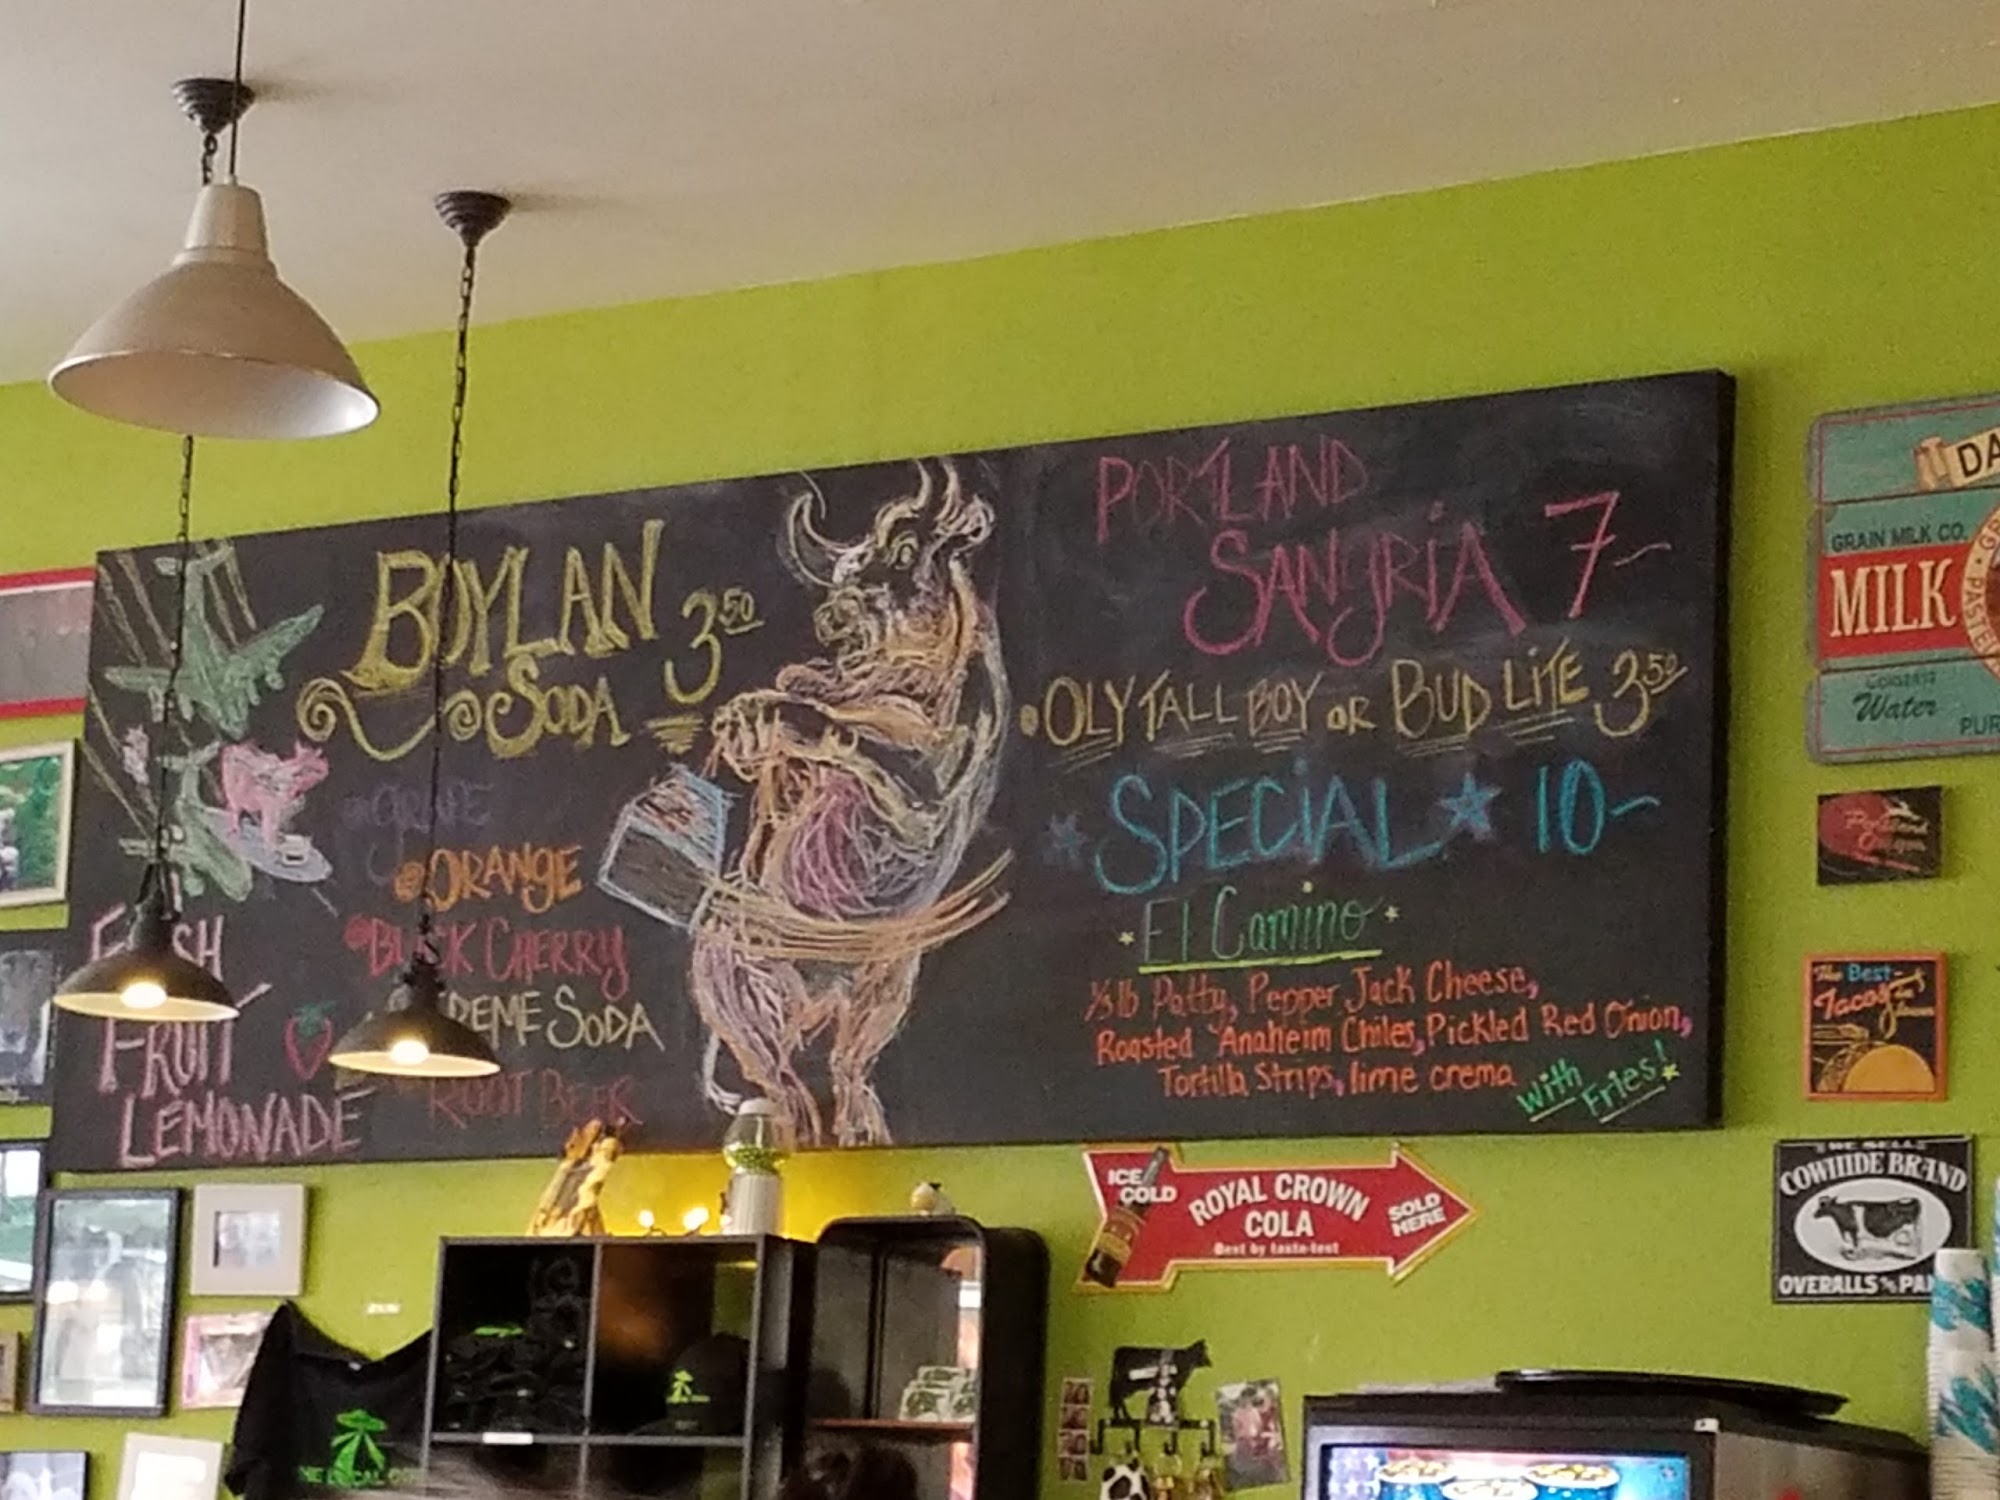 BOYLAN
SODA 3.50
GRAPE
ORANGE
BLACK CHERRY
REME SODA
ROOT BEER
FRESH
FRUIT
LEMONADE
PORTLAND
SANGRIA 7~
OLY TALL BOY OR BUD LITE 3.50
SPECIAL 10~
El Camino
1/3 lb Patty, Pepper Jack Cheese,
Roasted Anaheim Chiles, Pickled Red Onion,
Tortilla Strips, lime crema
with
Fries!
DA
GRAIN MILK CO.
MILK
Water
PUR
The Best
Tacos
COWHIDE BRAND
OVERALLS
ICE
COLD
ROYAL CROWN
COLA
Best by taste-test
SOLD
HERE